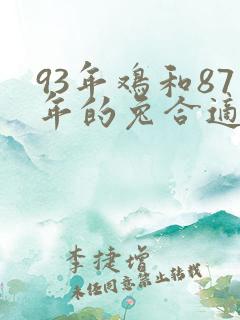 93年鸡和87
年的兔合适
李捷增
未经同意禁止转载